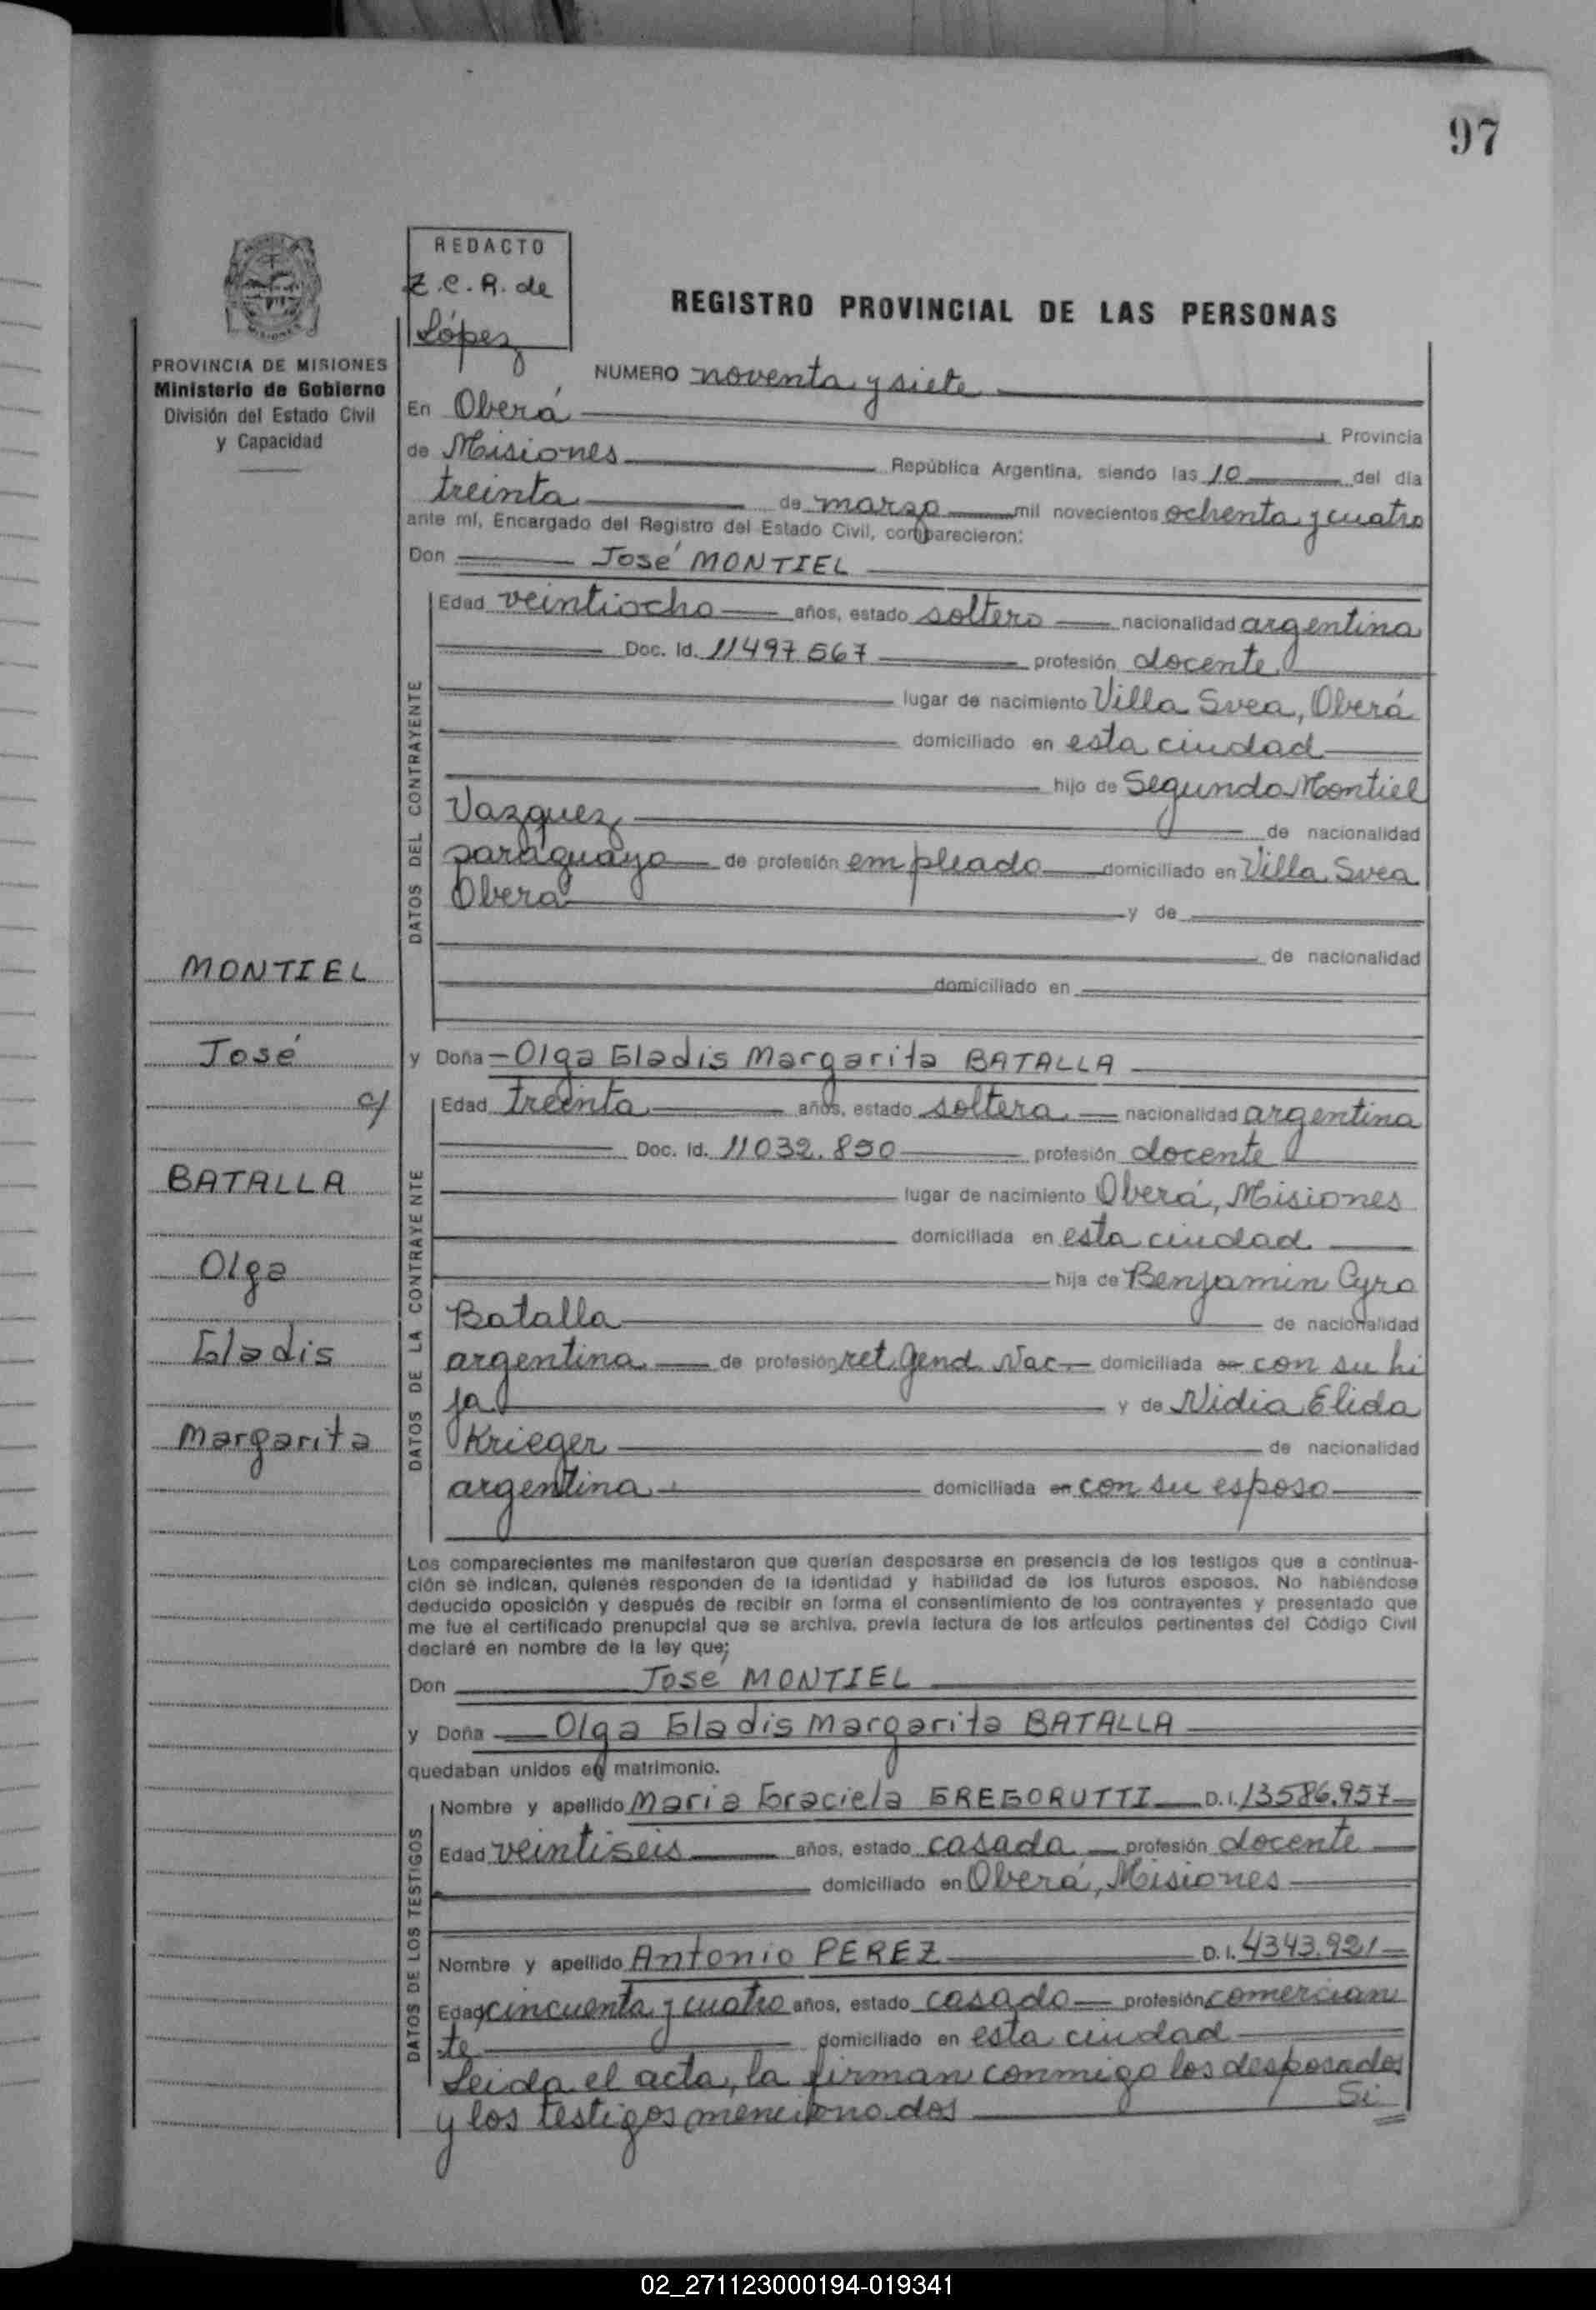 97
REDACTO
Z.C.R. de
López
REGISTRO PROVINCIAL DE LAS PERSONAS
MISIONES
PROVINCIA DE MISIONES
Ministerio de Gobierno
División del Estado Civil
y Capacidad
NUMERO noventa y siete
En Oberá Provincia
de Misiones República Argentina, siendo las 10 del día
treinta de marzo mil novecientos ochenta y cuatro
ante mí, Encargado del Registro del Estado Civil, comparecieron:
Don José MONTIEL
DATOS DEL CONTRAYENTE
Edad veintiocho años, estado soltero nacionalidad argentina
Doc. Id. 11497.567 profesión docente
lugar de nacimiento Villa Svea, Oberá
domiciliado en esta ciudad
hijo de Segundo Montiel
Vazquez de nacionalidad
paraguayo de profesión empleado domiciliado en Villa Svea
Oberá y de
de nacionalidad
domiciliado en
MONTIEL
José
c/
BATALLA
Olga
Gladis
Margarita
y Doña - Olga Gladis Margarita BATALLA
DATOS DE LA CONTRAYENTE
Edad treinta años, estado soltera nacionalidad argentina
Doc. Id. 11032.850 profesión docente
lugar de nacimiento Oberá, Misiones
domiciliada en esta ciudad
hija de Benjamin Cyro
Batalla de nacionalidad
argentina de profesión ret. Gend. Nac. domiciliada en con su hi
ja y de Nidia Elida
Krieger de nacionalidad
argentina domiciliada en con su esposo
Los comparecientes me manifestaron que querían desposarse en presencia de los testigos que a continua-
ción se indican, quienes responden de la identidad y habilidad de los futuros esposos. No habiéndose
deducido oposición y después de recibir en forma el consentimiento de los contrayentes y presentado que
me fue el certificado prenupcial que se archiva, previa lectura de los artículos pertinentes del Código Civil
declaré en nombre de la ley que;
Don José MONTIEL
y Doña Olga Gladis Margarita BATALLA
quedaban unidos en matrimonio.
DATOS DE LOS TESTIGOS
Nombre y apellido Maria Graciela GREGORUTTI D.I. 13586.957
Edad veintiseis años, estado casada profesión docente
domiciliado en Oberá, Misiones
Nombre y apellido Antonio PEREZ D.I. 4343.921
Edad cincuenta y cuatro años, estado casado profesión comercian
te domiciliado en esta ciudad
Leida el acta, la firman conmigo los desposados
y los testigos mencionados Si
02_271123000194-019341